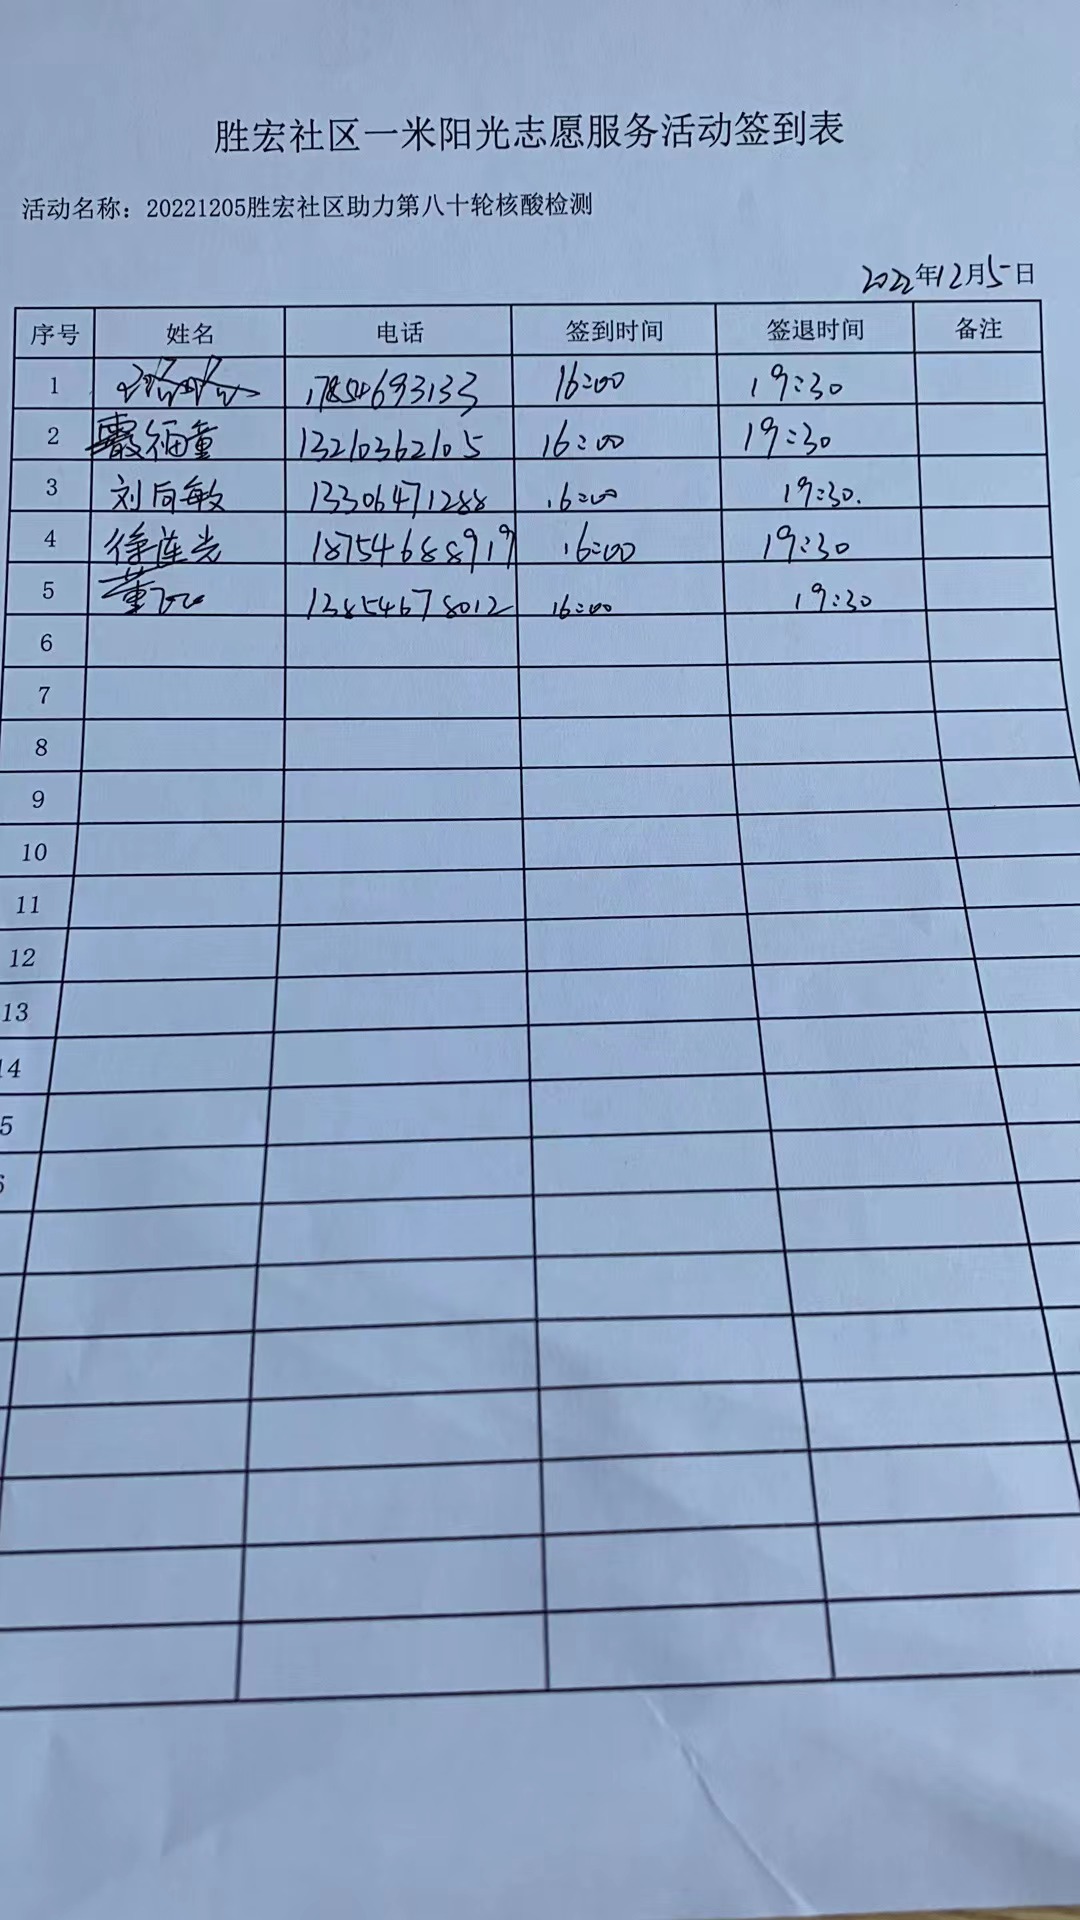 胜宏社区一米阳光志愿服务活动签到表
活动名称：20221205胜宏社区助力第八十轮核酸检测
2022年12月5日
序号 姓名 电话 签到时间 签退时间 备注
1 16:00 19:30
2 13210362105 16:00 19:30
3 刘向敏 13306471288 16:00 19:30.
4 徐连光 18754688919 16:00 19:30
5 董 13854678012 16:00 19:30
6
7
8
9
10
11
12
13
14
5
6